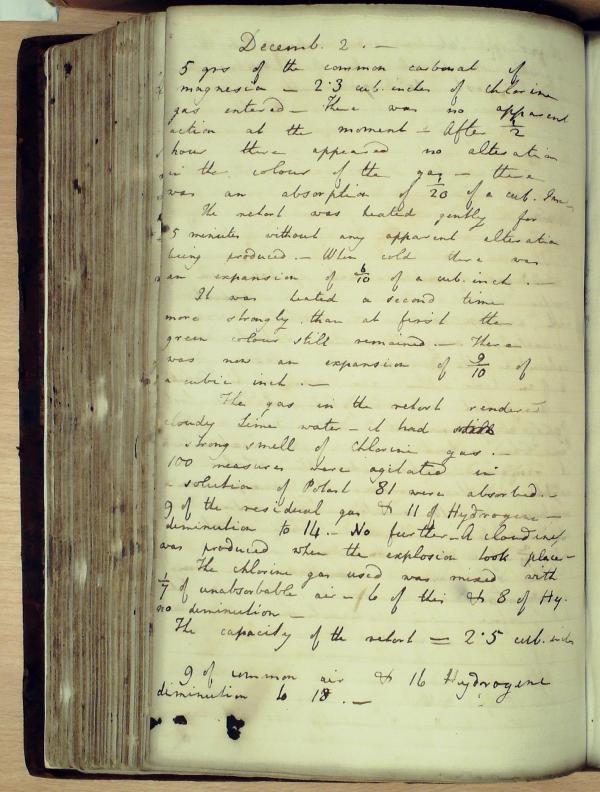 Decemb. 2. —
5 grs of the common carbonat of
magnesia — 2·3 cub. inches of chlorine
gas entered — There was no apparent
action at the moment — After 1/2
hour there appeared no alteration
in the colour of the gas — there
was an absorption of /20 of a cub. Inc
The retort was heated gently for
5 minutes without any apparent alteration
being produced. — When cold there was
an expansion of 6/10 of a cub. inch. —
It was heated a second time
more strongly than at first the
green colour still remained. — There
was now an expansion of 9/10 of
a cubic inch. —
The gas in the retort rendered
cloudy Lime water — it had
a strong smell of Chlorine gas. —
100 measures were agitated in
a solution of Potash 81 were absorbed. —
9 of the residual gas & 11 of Hydrogene —
diminution to 14 — No further — A cloudiness
was produced when the explosion took place —
The chlorine gas used was mixed with
1/7 of unabsorbable air — 6 of this & 8 of Hy.
no diminution —
The capacity of the retort = 2·5 cub. inches
9 of common air & 16 Hydrogene
diminution to 18. —